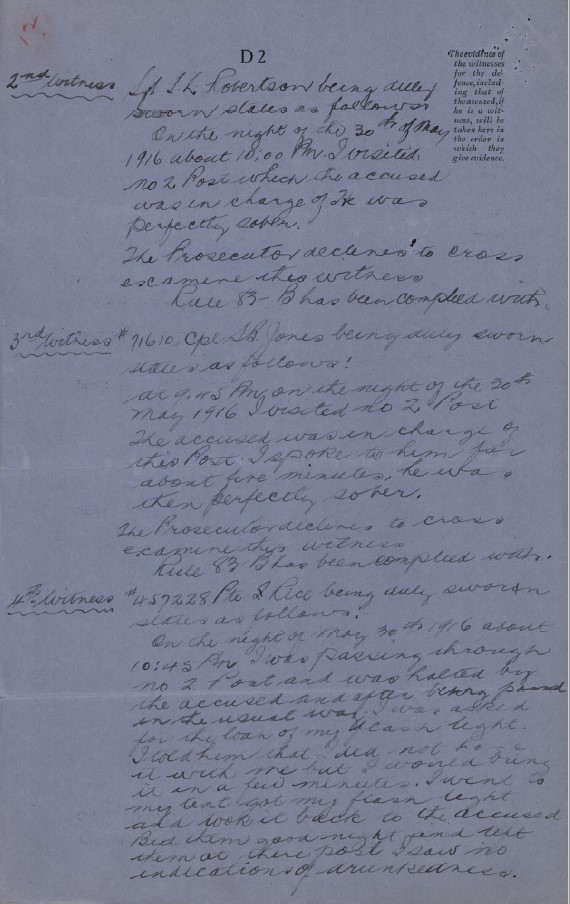 D 2
The evidence of
the witnesses
for the de-
fence, includ-
ing that of
the accused, if
he is a wit-
ness, will be
taken here in
the order in
which they
give evidence.
2nd Witness
Sgt S. L. Robertson being duly
sworn states as follows
On the night of the 30th of May
1916 about 10:00 Pm. I visited
no 2 Post which the accused
was in charge of He was
perfectly sober.
The Prosecutor declines to cross
examine this witness
Rule 83-B has been complied with.
3rd Witness
#71610 Cpl S.B. Jones being duly sworn
states as follows!
at 9.45 Pm, on the night of the 30th
May 1916 I visited no 2 Post
The accused was in charge of
this Post. I spoke to him for
about five minutes. he was
then perfectly sober.
The Prosecutor declines to cross
examine this witness
Rule 83-B has been complied with.
4th Witness
#457228 Pte S Rice being duly sworn
states as follows!
On the night of May 30th 1916 about
10:45 Pm I was passing through
no 2 Post and was halted by
the accused and after being passed
in the usual way I was asked
for the loan of my flash light.
I told him that I did not have
it with me but I would bring
it in a few minutes. I went to
my tent got my flash light
and took it back to the accused
Bid them good night and left
them at there post I saw no
indications of drunkedness.